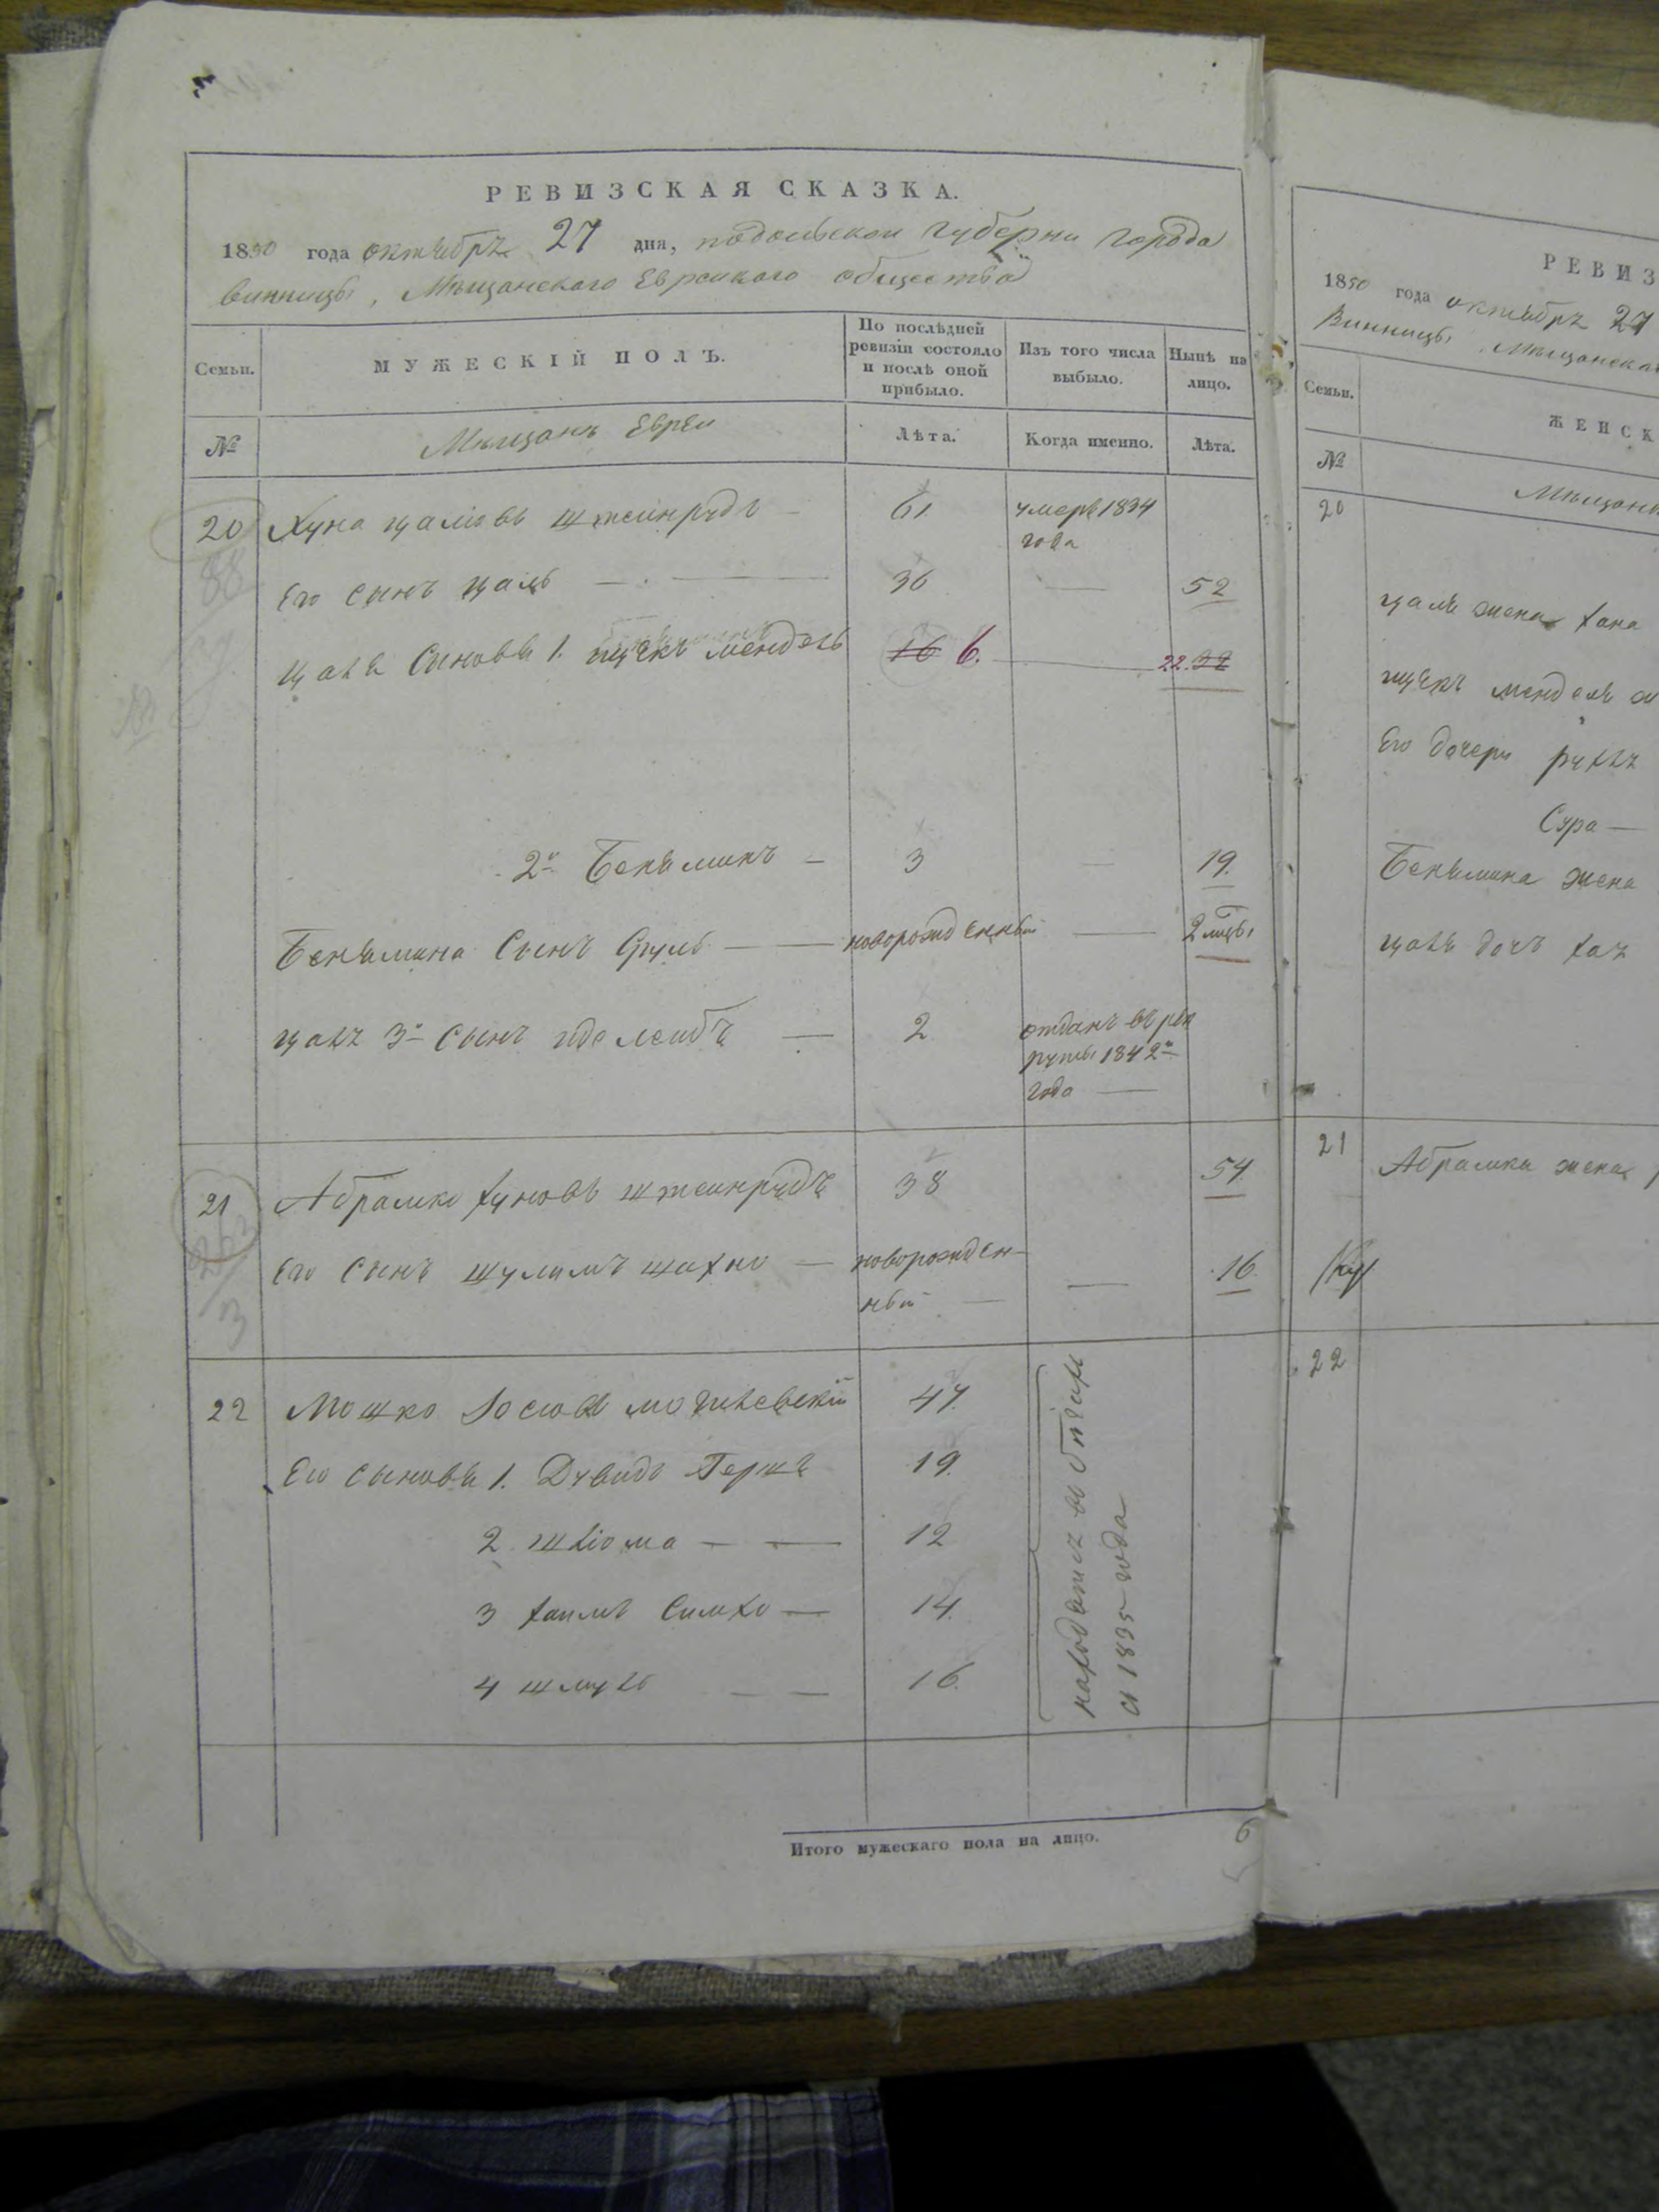 РЕВИЗСКАЯ СКАЗКА.
1850 года октября 27 дня, подольской губерни города
винницы, Мещанского Еврейского общества
Семьи.
МУЖЕСКІЙ ПОЛЪ.
По послѣдней
ревизіи состояло
и послѣ оной
прибыло.
Изъ того числа
выбыло.
Нынѣ на
лицо.
№
Мещанъ Евреи
Лѣта.
Когда именно.
Лѣта.
20 Хуна цалiовъ штеинрудъ — 61 умеръ 1834
года
88
Его сынъ цаль — 36 — 52
цаля Сыновья 1. ицекъ мендель 16 6. — 22. 32
2й Беньяминъ — 3 — 19.
Беньямина Сынъ Сруль — новорожденный — 2 мцы
цаля 3й Сынъ иделеибъ — 2 отданъ въ рек
руты 1842го
года —
21 Абрамко хуновъ штеинрудъ 38 54.
Его Сынъ шулимъ шахно — новорожден-
ный — — 16.
3
22 Мошко Iосiовъ могилевскій 47.
Его сыновья 1. Дувидъ Гершъ 19.
2 шліома — — 12
3 хаимъ Симхо — 14.
4 шмуль — — 16.
находятся въ бѣгахъ
съ 1835 года
Итого мужескаго пола на лицо. 6
РЕВИЗ
1850 года октября 27
Винницы, Мещанска
Семьи.
ЖЕНСК
№
Мещанъ
20
цаля жена хана
ицекъ мендели
Его дочери рухля
Сура —
Беньямина жена
цаля дочь хая
21 Абрамки жена
22